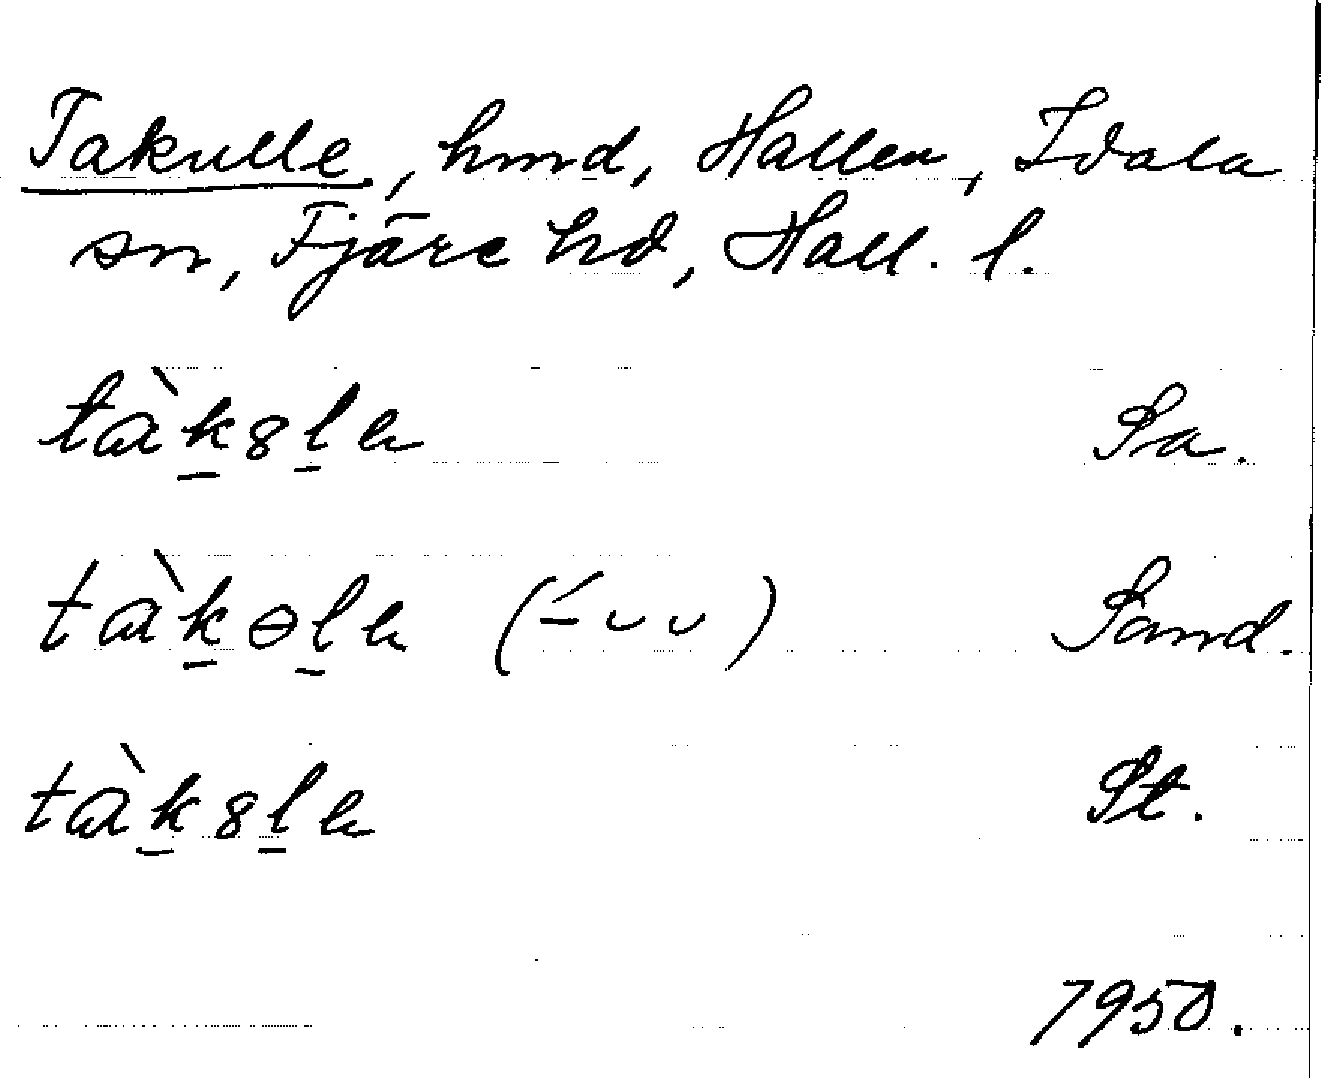 Takulle, hmd, Hallen, Idala
sn, Fjäre hd, Hall. l.
tàk8la Sa.
tàkɵla (-́ ᴗ ᴗ) Sand.
tàk8la St.
1950.